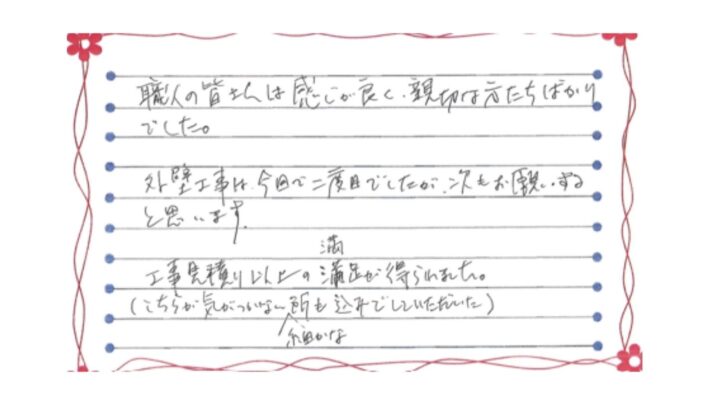 職人の皆さんは感じが良く、親切な方たちばかり
でした。
外壁工事は、今回で二度目でしたが、次もお願いする
と思います。
満
工事見積り以上の満足が得られました。
(こちらが気がつかない所も込みでしていただいた)
細かな